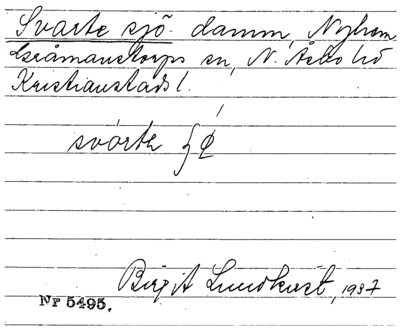 Svarte sjö. damm, Nyhem
Gråmanstorps sn, N. Åsbo hd
Kristianstads l.
svórta
Birgit Lundkvist, 1937
Nr 5495.